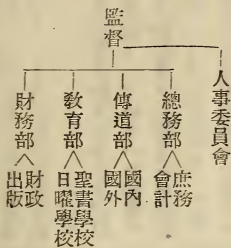 監督
人事委員會
總務部
庶務
會計
傳道部
國內
國外
敎育部
聖書學校
日曜學校
財務部
財政
出版